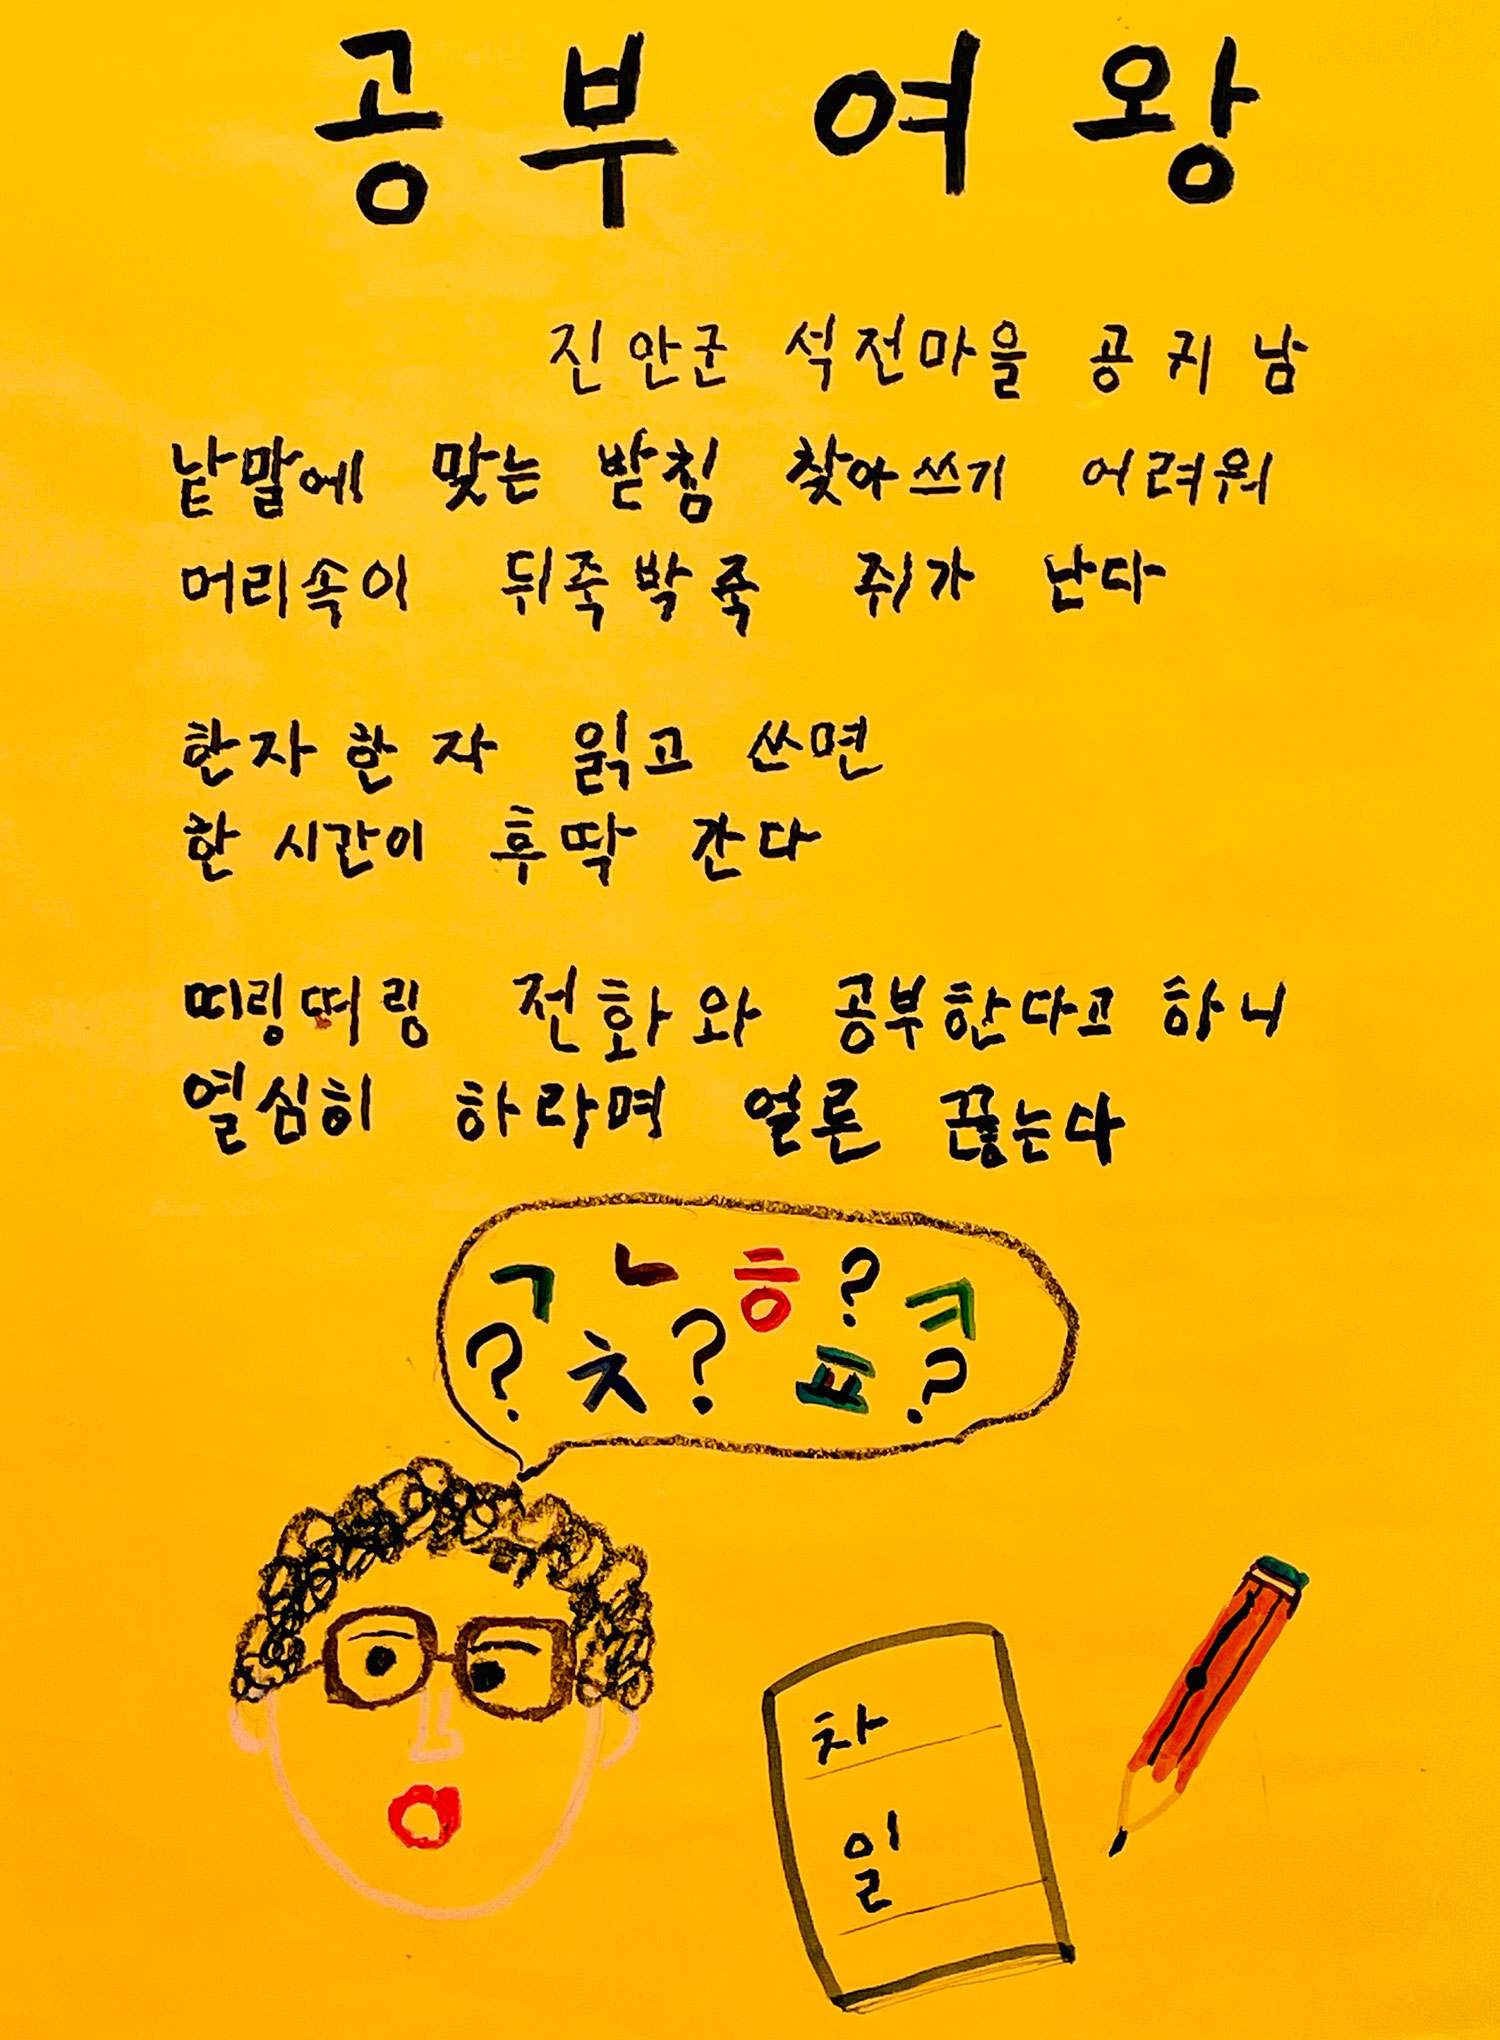 공부여왕
진안군 석전마을 공귀남
낱말에 맞는 받침 찾아쓰기 어려워
머리속이 뒤죽박죽 쥐가 난다
한자한자 읽고 쓰면
한 시간이 후딱 간다
띠링띠링 전화와 공부한다고 하니
열심히 하라며 얼론 끊는다
ㄱ ㄴ ㅎ ? ㅋ
? ㅊ ? ㅍ ?
차
일